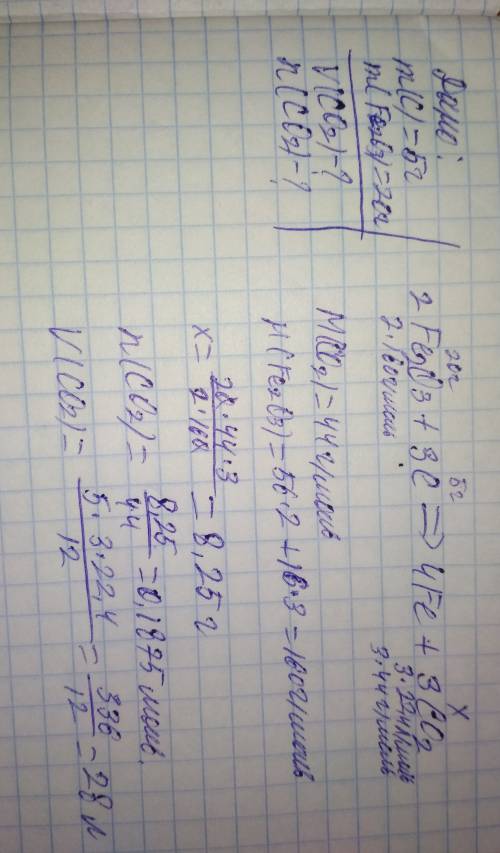 Дано:
m(C)=5г
m(Fe2O3)=20г
V(CO2)-?
n(CO2)-?
20г 5г x
2Fe2O3 + 3C => 4Fe + 3CO2
2·160г/моль 3·22,4л/моль
3·44г/моль
M(CO2)=44г/моль
M(Fe2O3)=56·2+16·3=160г/моль
x= 20·44·3 / 2·160 = 8,25г
n(CO2)= 8,25 / 44 =0,1875 моль.
V(CO2)= 5·3·22,4 / 12 = 336 / 12 = 28 л